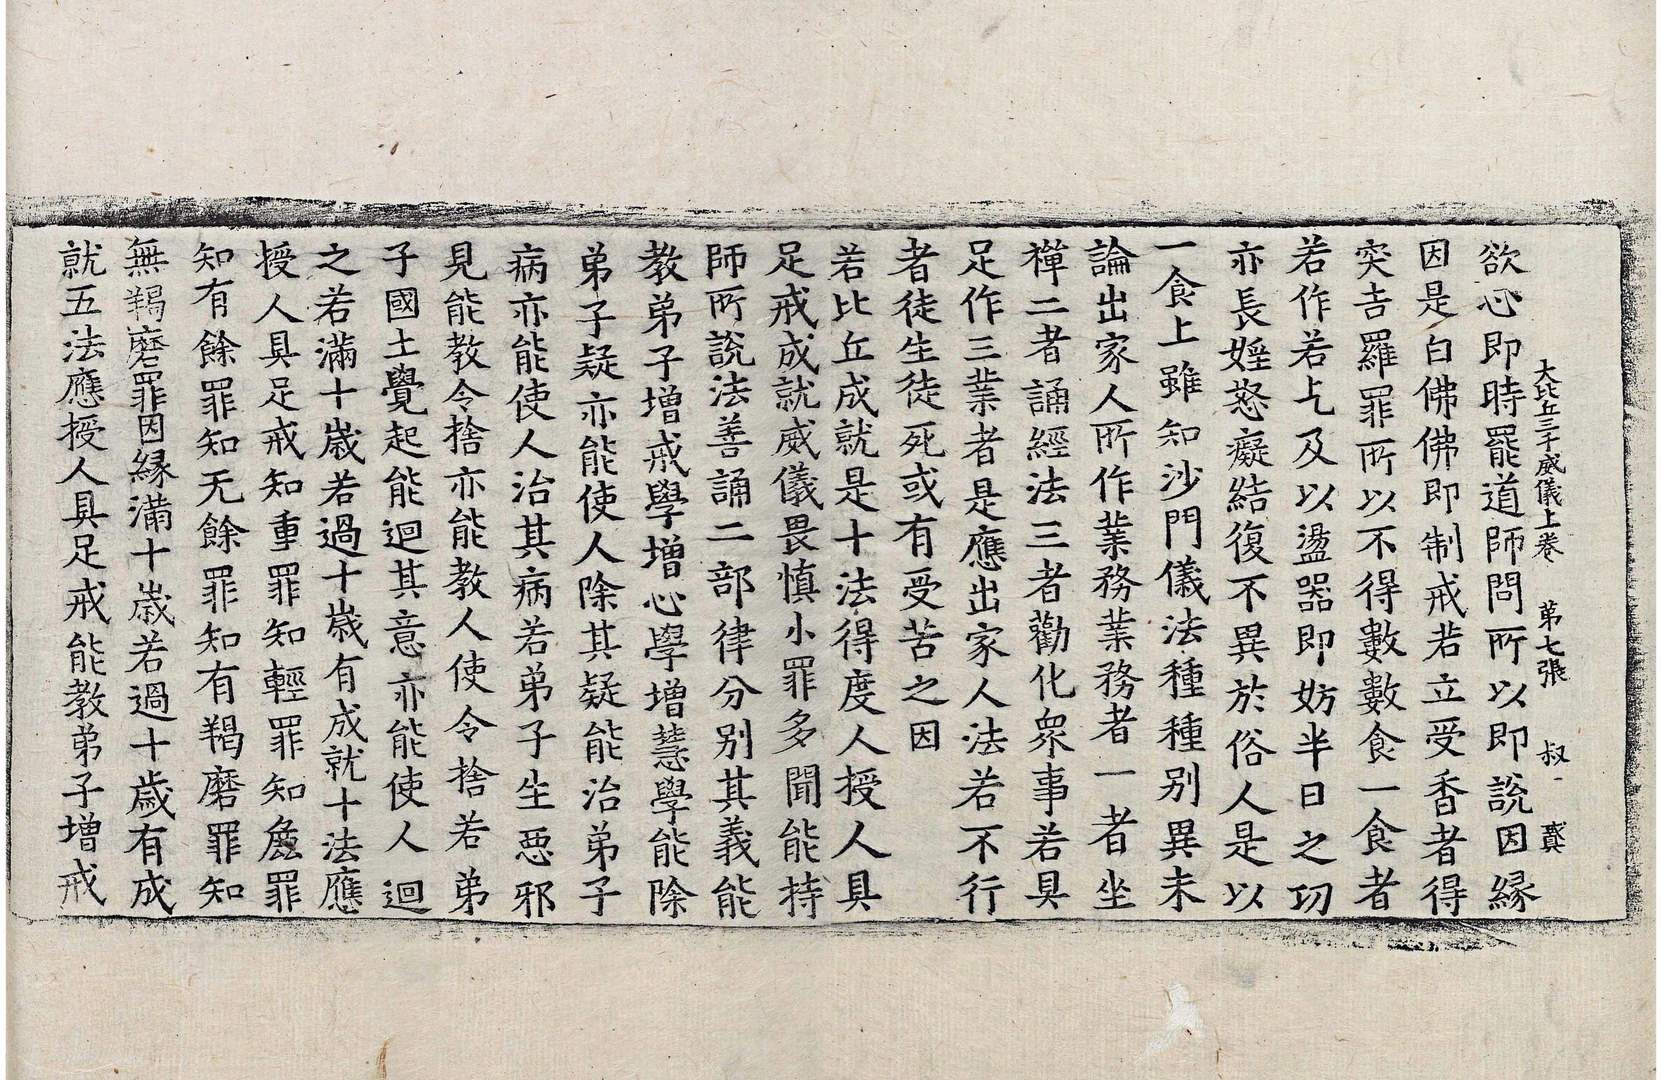 大比丘三千威儀上卷 第七張 叔
欲心即時罷道師問所以即説因緣
因是白佛佛即制戒若立受香者得
突吉羅罪所以不得數數食一食者
若作若上及以盪器即妨半日之功
亦長婬怒癡結復不異於俗人是以
一食上雖知沙門儀法種種別異未
論出家人所作業務業務者一者坐
禪二者誦經法三者勸化衆事若具
足作三業者是應出家人法若不行
者徒生徒死或有受苦之因
若比丘成就是十法得度人授人具
足戒成就威儀畏慎小罪多聞能持
師所説法善誦二部律分别其義能
教弟子增戒學增心學增慧學能除
弟子疑亦能使人除其疑能治弟子
病亦能使人治其病若弟子生惡邪
見能教令捨亦能教人使令捨若弟
子國土覺起能迴其意亦能使人迴
之若滿十歲若過十歲有成就十法應
授人具足戒知重罪知輕罪知麁罪
知有餘罪知无餘罪知有羯磨罪知
無羯磨罪因緣滿十歲若過十歲有成
就五法應授人具足戒能教弟子增戒